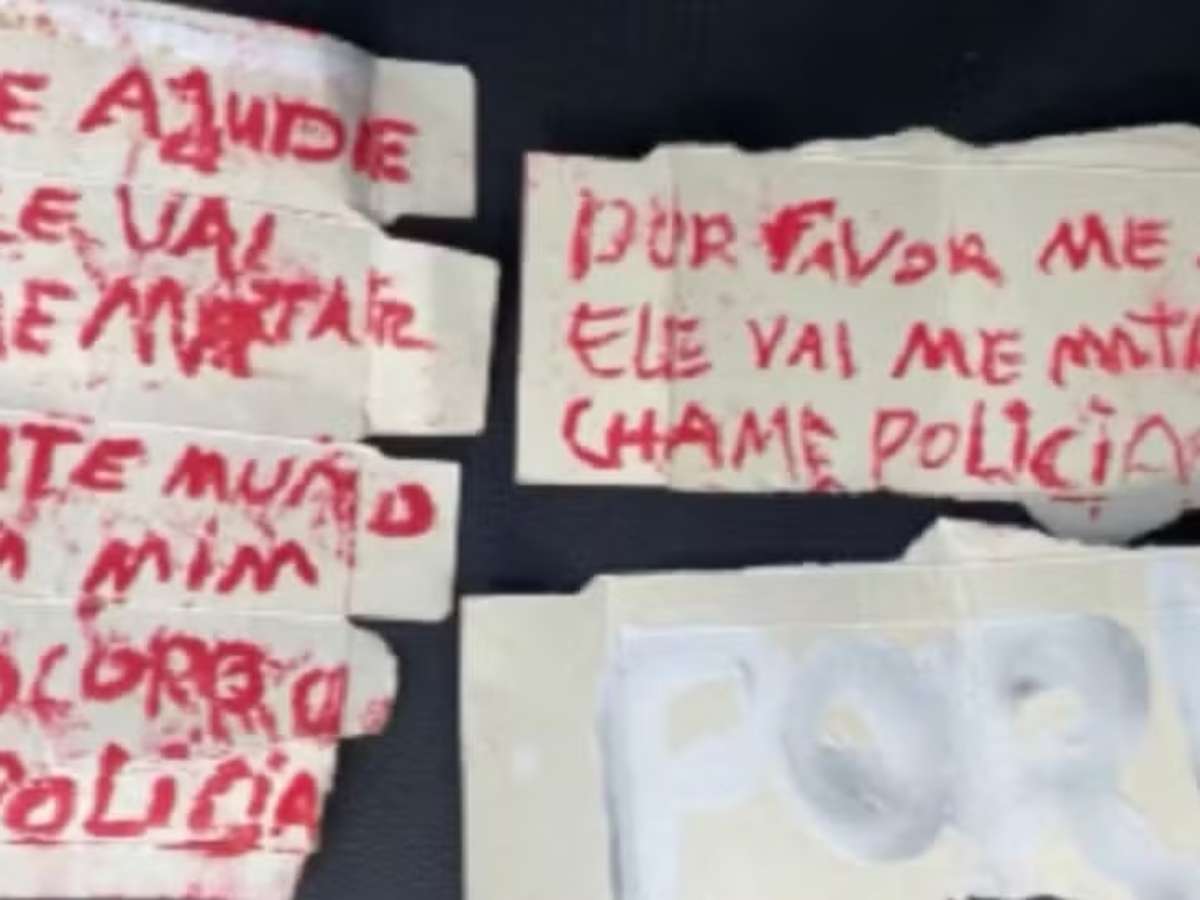 E AJUDE
LE VAI
ME MATAR
ITE MUND
MIM
SOCORRO
POLICIA
POR FAVOR ME
ELE VAI ME MATA
CHAME POLICIA
POR